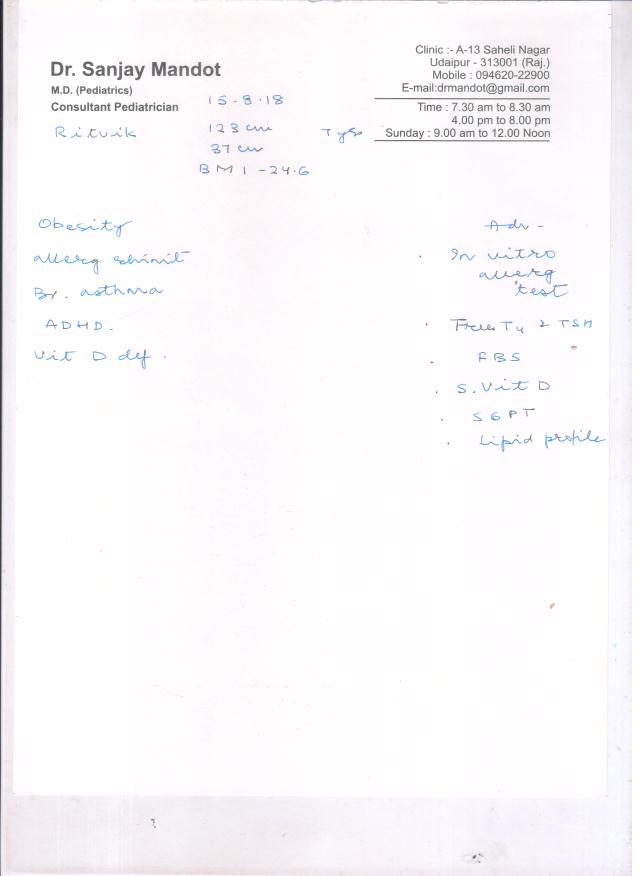 Dr. Sanjay Mandot
M.D. (Pediatrics)
Consultant Pediatrician
Clinic :- A-13 Saheli Nagar
Udaipur - 313001 (Raj.)
Mobile : 094620-22900
E-mail:drmandot@gmail.com
Time : 7.30 am to 8.30 am
4.00 pm to 8.00 pm
Sunday : 9.00 am to 12.00 Noon
15.8.18
Ritvik 123 cm
37 cm
BMI - 24.6
Obesity
allerg rhinit
Br. asthma
ADHD.
Vit D def.
Adv -
In vitro
allerg
test
Free T4 & TSH
FBS
S. Vit D
SGPT
Lipid profile